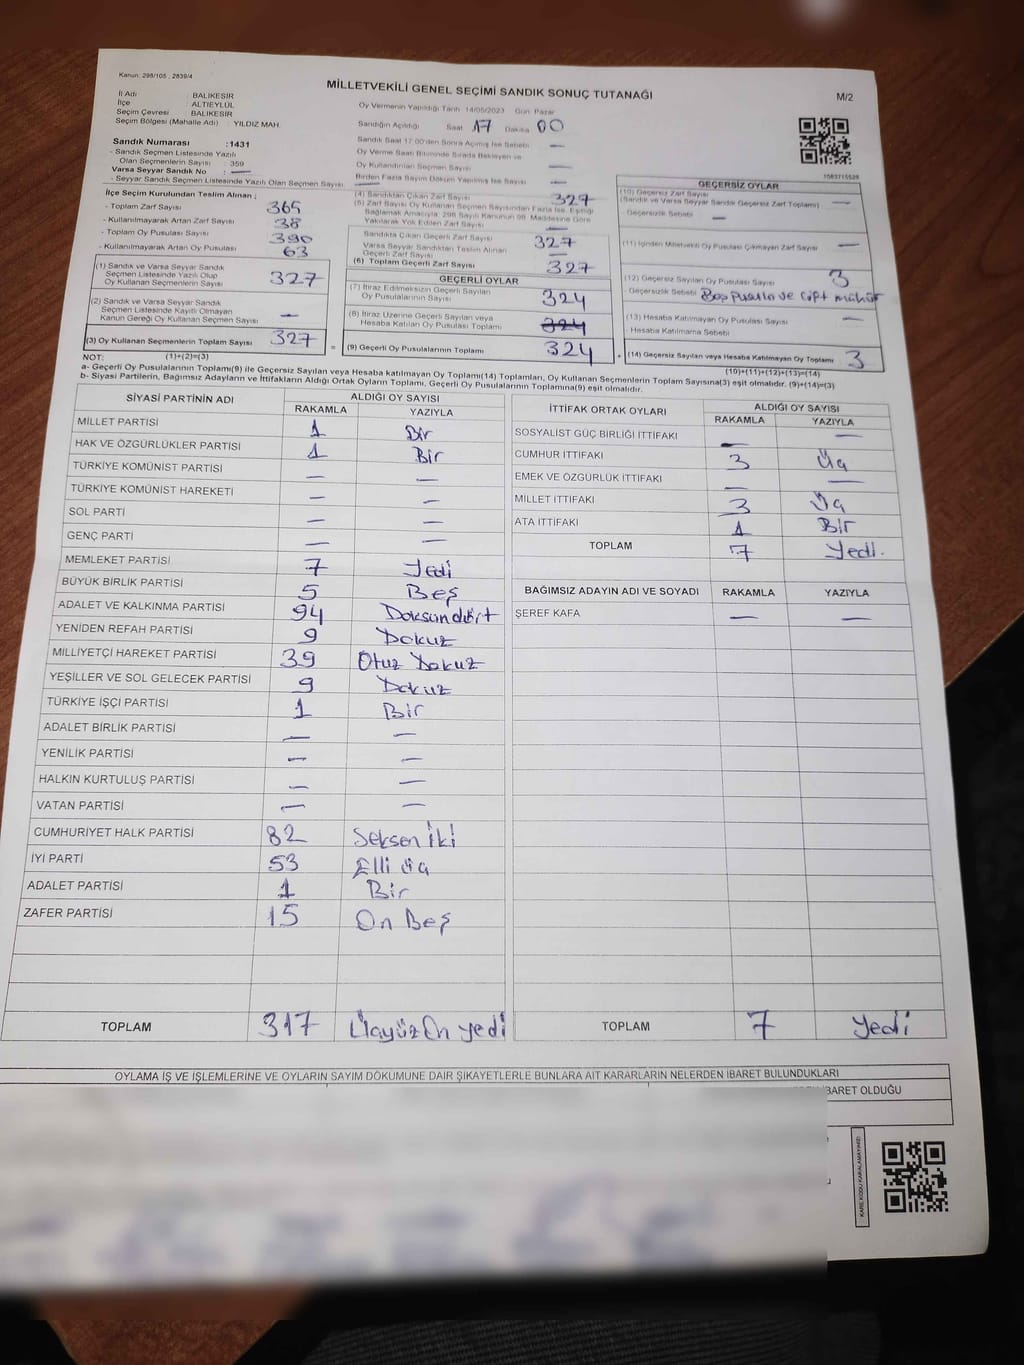 Kanun: 298/105 , 2839/4
MİLLETVEKİLİ GENEL SEÇİMİ SANDIK SONUÇ TUTANAĞI
M/2
İl Adı : BALIKESİR
İlçe : ALTIEYLÜL
Seçim Çevresi : BALIKESİR
Seçim Bölgesi (Mahalle Adı) : YILDIZ MAH.
Sandık Numarası : 1431
- Sandık Seçmen Listesinde Yazılı
Olan Seçmenlerin Sayısı : 359
Varsa Seyyar Sandık No : —
- Seyyar Sandık Seçmen Listesinde Yazılı Olan Seçmen Sayısı: —
Oy Vermenin Yapıldığı Tarih 14/05/2023 Gün Pazar
Sandığın Açıldığı Saat 17 Dakika 00
Sandık Saat 17:00'den Sonra Açılmış İse Sebebi —
Oy Verme Saati Bitiminde Sırada Bekleyen ve
Oy Kullandırılan Seçmen Sayısı —
Birden Fazla Sayım Döküm Yapılmış İse Sayısı —
İlçe Seçim Kurulundan Teslim Alınan ;
- Toplam Zarf Sayısı 365
- Kullanılmayarak Artan Zarf Sayısı 38
- Toplam Oy Pusulası Sayısı 390
- Kullanılmayarak Artan Oy Pusulası 63
(1) Sandık ve Varsa Seyyar Sandık
Seçmen Listesinde Yazılı Olup
Oy Kullanan Seçmenlerin Sayısı 327
(2) Sandık ve Varsa Seyyar Sandık
Seçmen Listesinde Kayıtlı Olmayan
Kanun Gereği Oy Kullanan Seçmen Sayısı —
(3) Oy Kullanan Seçmenlerin Toplam Sayısı 327
(1)+(2)=(3)
(4) Sandıktan Çıkan Zarf Sayısı 327
(5) Zarf Sayısı Oy Kullanan Seçmen Sayısından Fazla İse, Eşitliği
Sağlamak Amacıyla, 298 Sayılı Kanunun 98. Maddesine Göre
Yakılarak Yok Edilen Zarf Sayısı —
Sandıkta Çıkan Geçerli Zarf Sayısı 327
Varsa Seyyar Sandıktan Teslim Alınan
Geçerli Zarf Sayısı —
(6) Toplam Geçerli Zarf Sayısı 327
GEÇERLİ OYLAR
(7) İtiraz Edilmeksizin Geçerli Sayılan
Oy Pusulalarının Sayısı 324
(8) İtiraz Üzerine Geçerli Sayılan veya
Hesaba Katılan Oy Pusulası Toplamı 324
(9) Geçerli Oy Pusulalarının Toplamı 324
GEÇERSİZ OYLAR
(10) Geçersiz Zarf Sayısı
(Sandık ve Varsa Seyyar Sandık Geçersiz Zarf Toplamı) —
Geçersizlik Sebebi —
(11) İçinden Milletvekili Oy Pusulası Çıkmayan Zarf Sayısı —
(12) Geçersiz Sayılan Oy Pusulası Sayısı 3
Geçersizlik Sebebi Boş Pusula ve Çift mühür
(13) Hesaba Katılmayan Oy Pusulası Sayısı —
Hesaba Katılmama Sebebi
(14) Geçersiz Sayılan veya Hesaba Katılmayan Oy Toplamı 3
(10)+(11)+(12)+(13)=(14)
NOT:
a- Geçerli Oy Pusulalarının Toplam(9) ile Geçersiz Sayılan veya Hesaba katılmayan Oy Toplamı(14) Toplamları, Oy Kullanan Seçmenlerin Toplam Sayısına(3) eşit olmalıdır. (9)+(14)=(3)
b- Siyasi Partilerin, Bağımsız Adayların ve İttifakların Aldığı Ortak Oyların Toplamı, Geçerli Oy Pusulalarının Toplamına(9) eşit olmalıdır.
SİYASİ PARTİNİN ADI ALDIĞI OY SAYISI
RAKAMLA YAZIYLA
MİLLET PARTİSİ 1 Bir
HAK VE ÖZGÜRLÜKLER PARTİSİ 1 Bir
TÜRKİYE KOMÜNİST PARTİSİ — —
TÜRKİYE KOMÜNİST HAREKETİ — —
SOL PARTİ — —
GENÇ PARTİ — —
MEMLEKET PARTİSİ 7 Yedi
BÜYÜK BİRLİK PARTİSİ 5 Beş
ADALET VE KALKINMA PARTİSİ 94 Doksandört
YENİDEN REFAH PARTİSİ 9 Dokuz
MİLLİYETÇİ HAREKET PARTİSİ 39 Otuz Dokuz
YEŞİLLER VE SOL GELECEK PARTİSİ 9 Dokuz
TÜRKİYE İŞÇİ PARTİSİ 1 Bir
ADALET BİRLİK PARTİSİ — —
YENİLİK PARTİSİ — —
HALKIN KURTULUŞ PARTİSİ — —
VATAN PARTİSİ — —
CUMHURİYET HALK PARTİSİ 82 Seksen iki
İYİ PARTİ 53 Elli üç
ADALET PARTİSİ 1 Bir
ZAFER PARTİSİ 15 On Beş
TOPLAM 317 Üçyüz On yedi
İTTİFAK ORTAK OYLARI ALDIĞI OY SAYISI
RAKAMLA YAZIYLA
SOSYALİST GÜÇ BİRLİĞİ İTTİFAKI — —
CUMHUR İTTİFAKI 3 Üç
EMEK VE ÖZGÜRLÜK İTTİFAKI — —
MİLLET İTTİFAKI 3 Üç
ATA İTTİFAKI 1 Bir
TOPLAM 7 Yedi.
BAĞIMSIZ ADAYIN ADI VE SOYADI RAKAMLA YAZIYLA
ŞEREF KAFA — —
TOPLAM 7 Yedi
OYLAMA İŞ VE İŞLEMLERİNE VE OYLARIN SAYIM DÖKÜMÜNE DAİR ŞİKAYETLERLE BUNLARA AİT KARARLARIN NELERDEN İBARET BULUNDUKLARI
İBARET OLDUĞU
KARE KODU KARALAMAYINIZ!